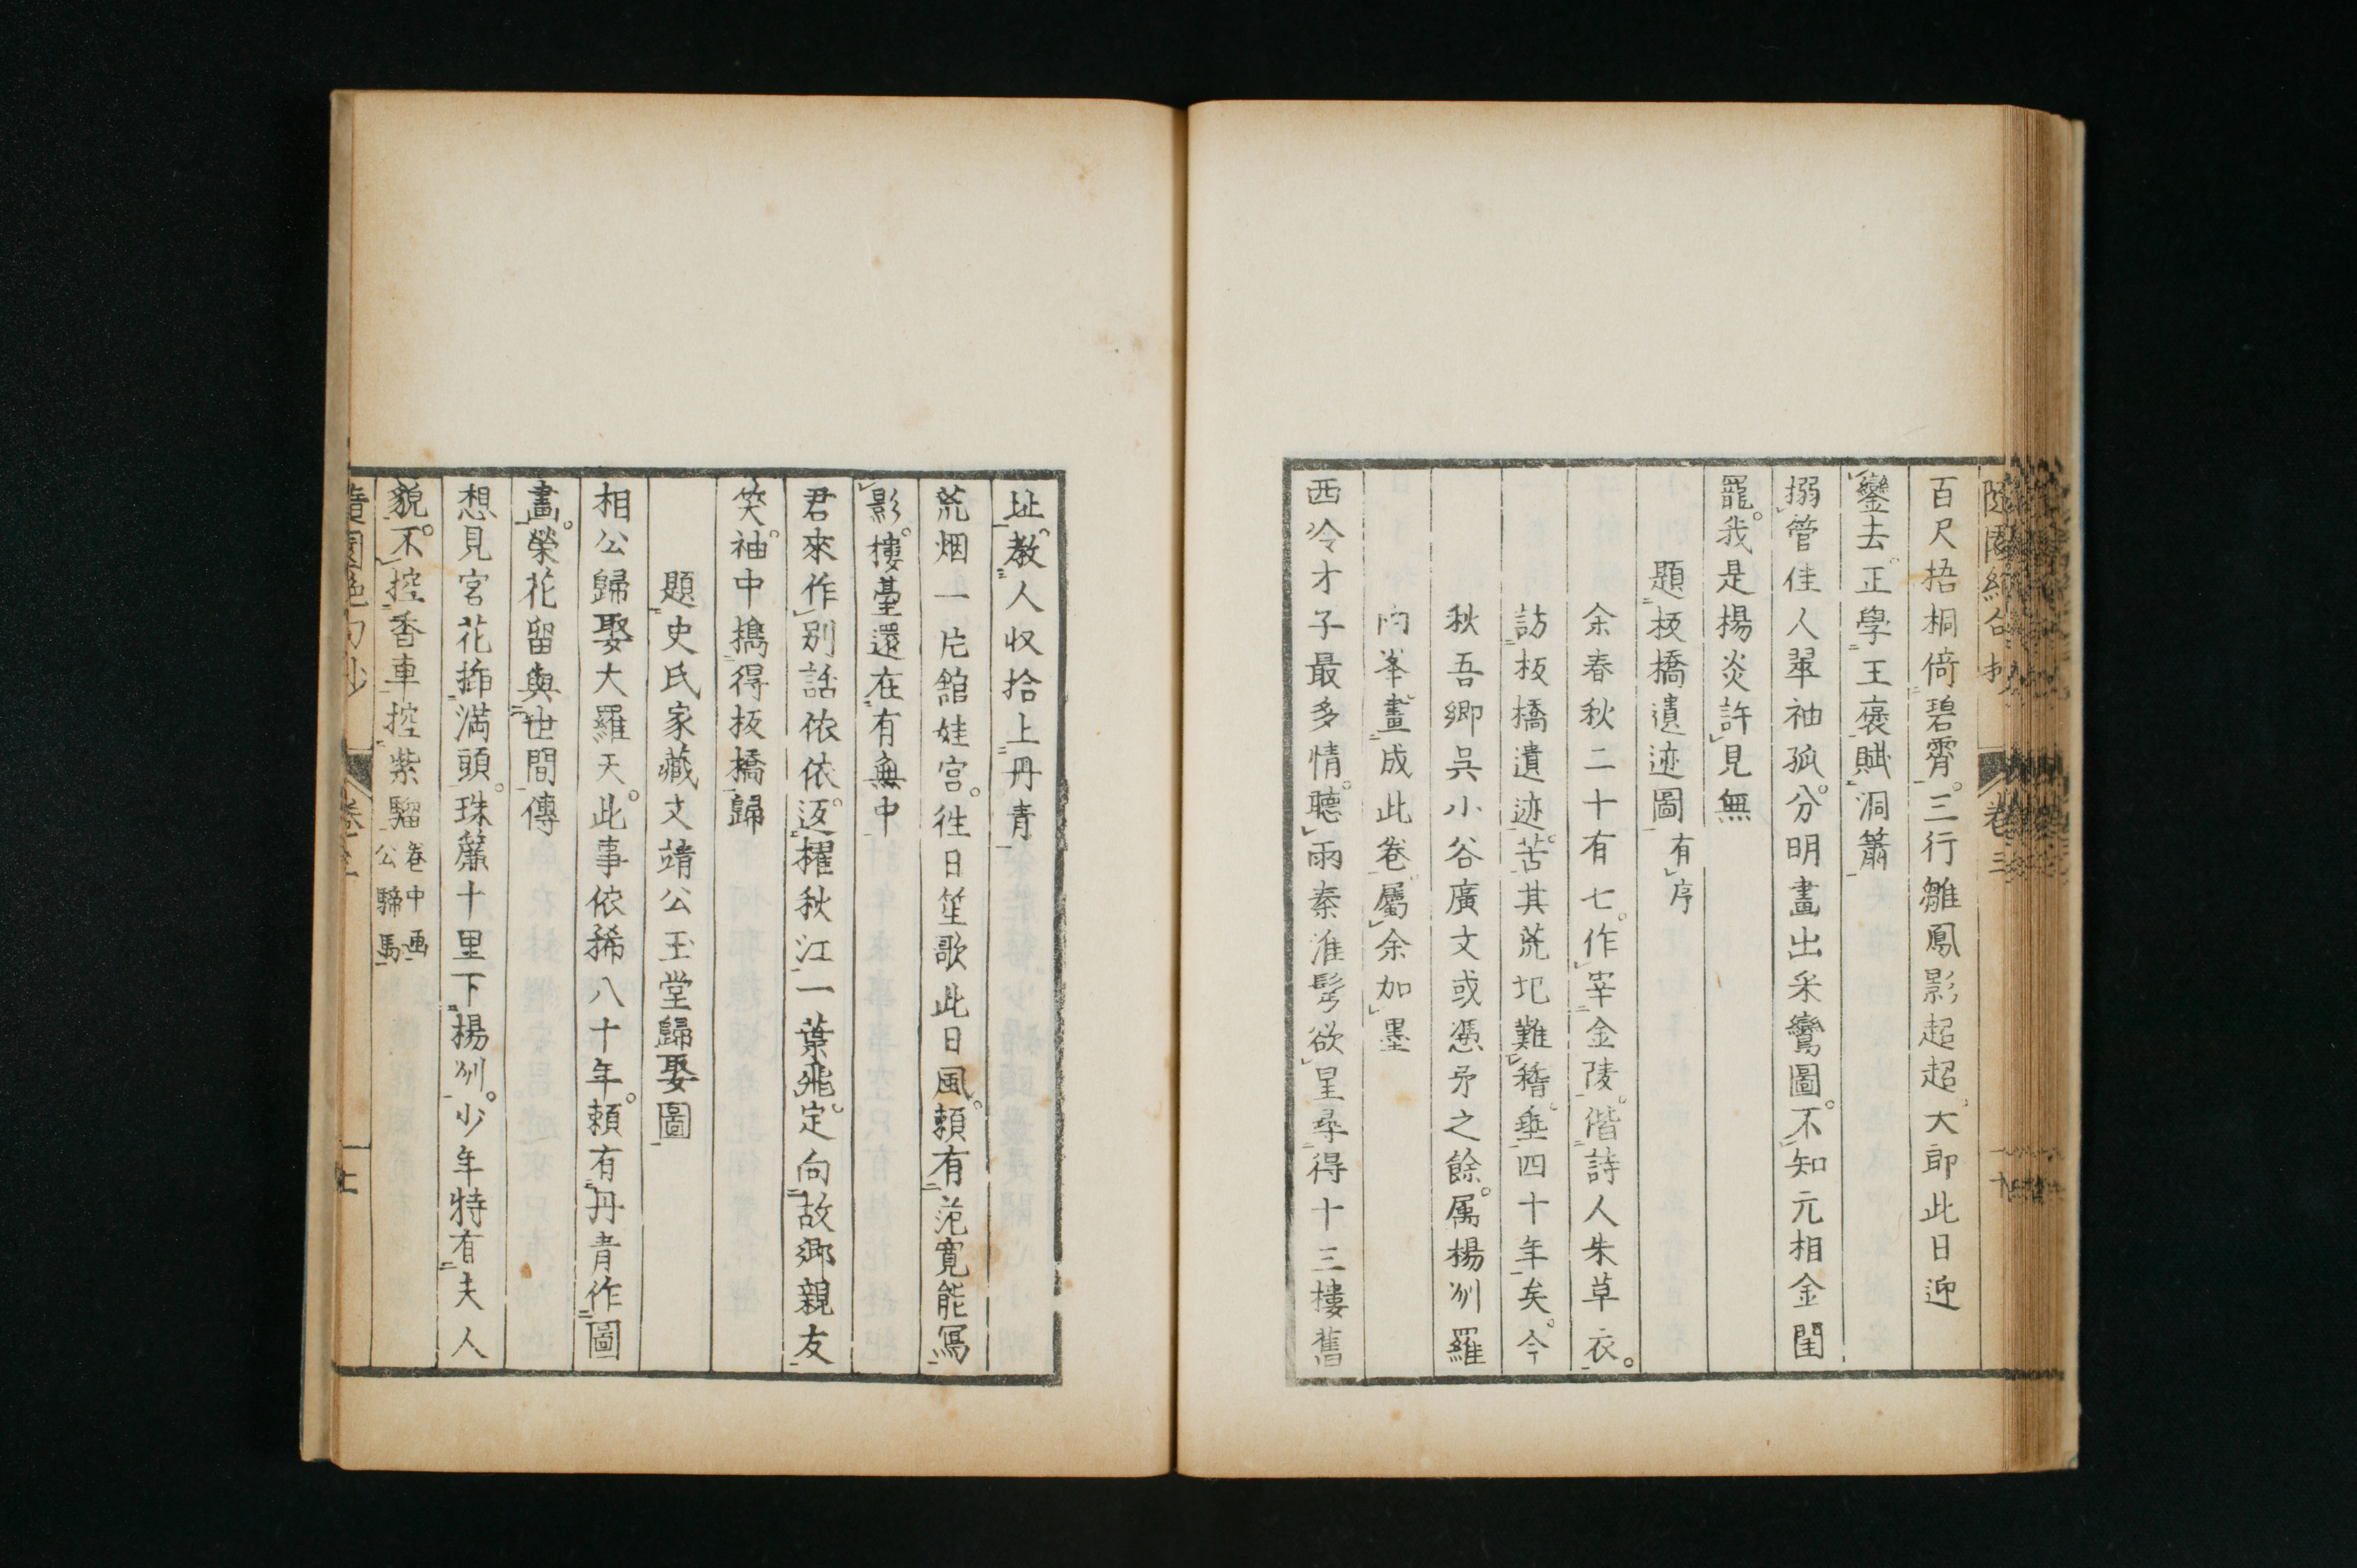 百尺梧桐倚碧霄三行雛鳳影超超大郎此日迎
鑾去正學王褒賦洞簫
搦管佳人翠袖孤分明畫出采鸞圖不知元相金閨
罷我是楊炎許見無
題板橋遺迹圖有序
余春秋二十有七作宰金陵偕詩人朱草衣
訪板橋遺迹苦其荒圯難稽垂四十年矣今
秋吾鄉吳小谷廣文或慿予之餘属楊州羅
两峯畫成此卷屬余加墨
西冷才子最多情聽雨秦淮髩欲星尋得十三樓舊
址教人収拾上丹青
荒烟一片館娃宮徃日笙歌此日風頼有范寛能寫
影樓臺還在有無中
君來作別話依依返擢秋江一葉飛定向故鄉親友
笑袖中攜得板橋歸
題史氏家藏文靖公玉堂歸娶圖
相公歸娶大羅天此事依稀八十年頼有丹青作圖
畫榮花留與世間傳
想見宮花揷満頭珠簾十里下楊州少年特有夫人
貌不控香車控紫騮卷中画公騎馬
隨園絶句抄
卷三